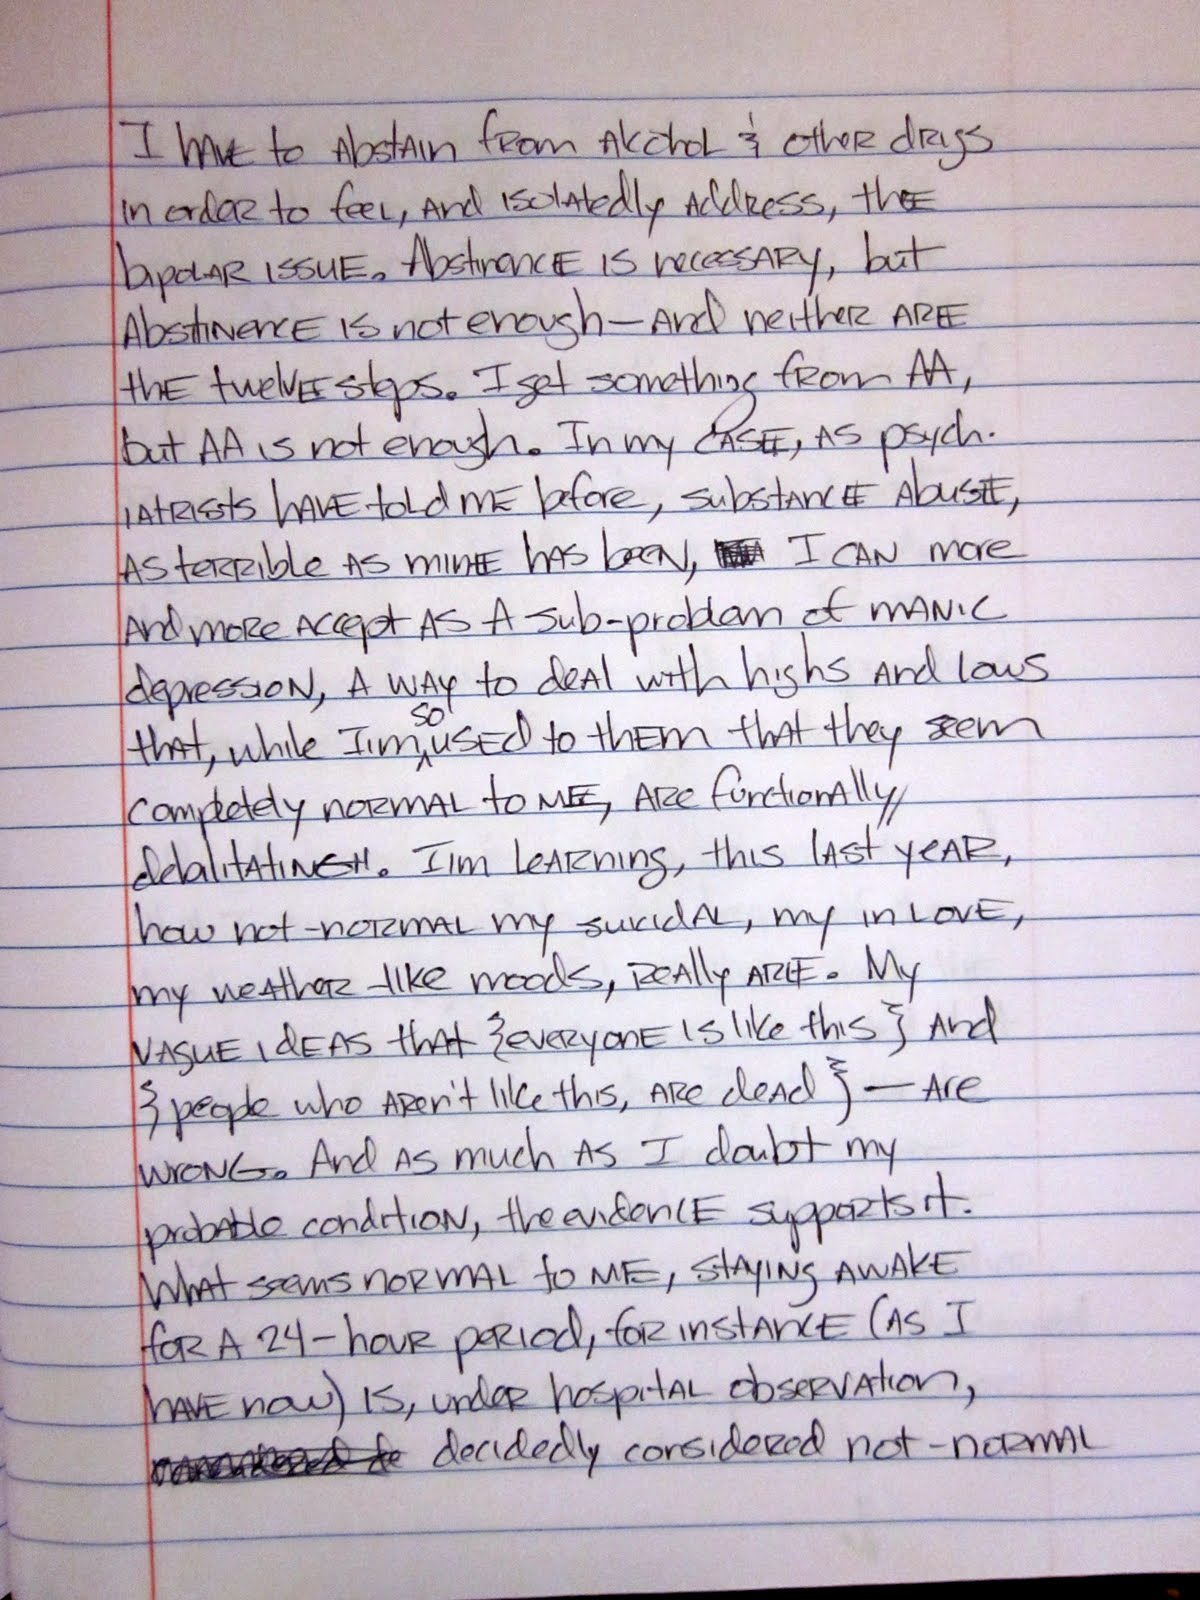 I have to abstain from alcohol & other drugs
in order to feel, and isolatedly address, the
bipolar issue. Abstinence is necessary, but
abstinence is not enough—and neither are
the twelve steps. I get something from AA,
but AA is not enough. In my case, as psych-
iatrists have told me before, substance abuse,
as terrible as mine has been, I can more
and more accept as a sub-problem of manic
depression, a way to deal with highs and lows
that, while I'm so used to them that they seem
completely normal to me, are functionally
debalitating. I'm learning, this last year,
how not-normal my suicidal, my in love,
my weather-like moods, really are. My
vague ideas that {everyone is like this} and
{people who aren't like this, are dead}—are
wrong. And as much as I doubt my
probable condition, the evidence supports it.
What seems normal to me, staying awake
for a 24-hour period, for instance (as I
have now) is, under hospital observation,
decidedly considered not-normal